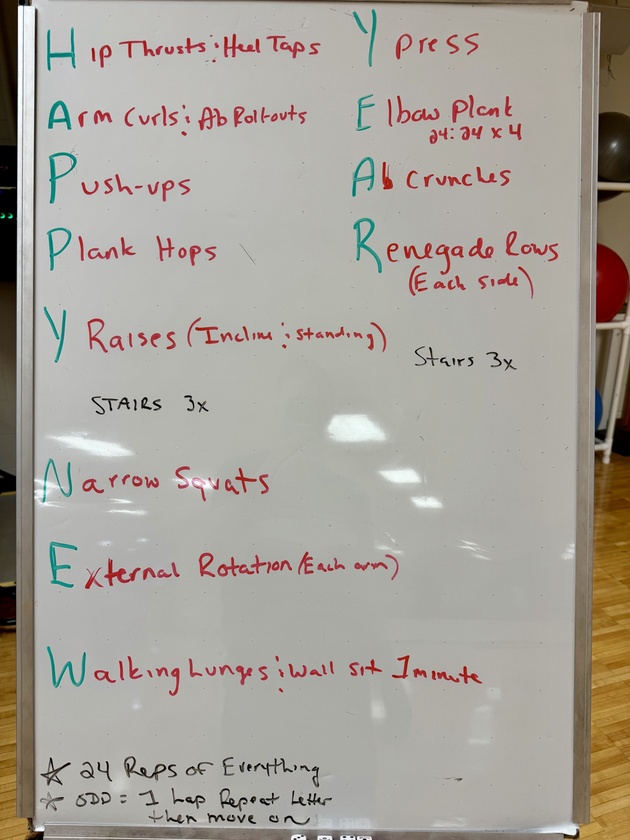 Hip Thrusts : Heel Taps
Arm Curls : Ab Rollouts
Push-ups
Plank Hops
Y Raises (Incline : standing)
STAIRS 3x
Narrow Squats
External Rotation (Each arm)
Walking Lunges : Wall sit 1 minute
Y press
Elbow Plank
24:24 x 4
Ab crunches
Renegade Rows
(Each side)
Stairs 3x
☆ 24 Reps of Everything
☆ ODD = 1 Lap Repeat Letter
then move on